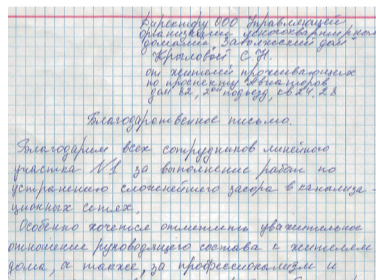 Директору ООО Управляющей
организацией многоквартирными
домами "Заволжский дом"
Крыловой С. Н.
от жителей проживающих
по проспекту Авиаторов
дом 82, 2ой подъезд, кв 24, 28
Благодарственное письмо.
Благодарим всех сотрудников линейного
участка N1 за выполнение работ по
устранению сложнейшего засора в канализа-
ционных сетях.
Особенно хочется отметить уважительное
отношение руководящего состава к жителям
дома, а также, за профессионализм и